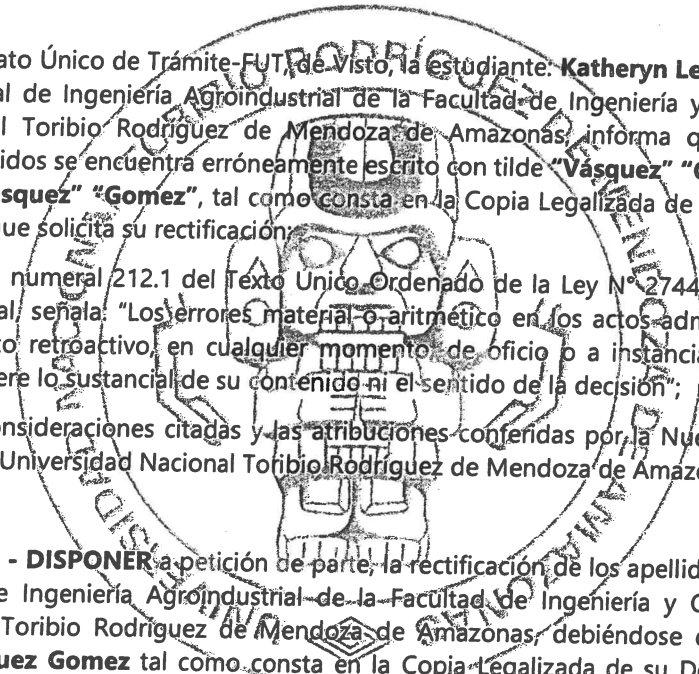 ato Único de Trámite-FUT, de Visto, la estudiante: Katheryn Le
al de Ingeniería Agroindustrial de la Facultad de Ingeniería y
l Toribio Rodríguez de Mendoza de Amazonas, informa q
idos se encuentra erróneamente escrito con tilde "Vásquez" "
squez" "Gomez", tal como consta en la Copia Legalizada de
ue solicita su rectificación;
numeral 212.1 del Texto Unico Ordenado de la Ley N° 2744
al, señala: "Los errores material o aritmético en los actos adm
to retroactivo, en cualquier momento, de oficio o a instancia
ere lo sustancial de su contenido ni el sentido de la decisión";
onsideraciones citadas y las atribuciones conferidas por la Nue
Universidad Nacional Toribio Rodríguez de Mendoza de Amazo
- DISPONER a petición de parte, la rectificación de los apellid
e Ingeniería Agroindustrial de la Facultad de Ingeniería y C
Toribio Rodríguez de Mendoza de Amazonas, debiéndose
uez Gomez tal como consta en la Copia Legalizada de su D
UNIVERSIDAD NACIONAL TORIBIO RODRÍGUEZ DE MENDOZA DE AMAZONAS